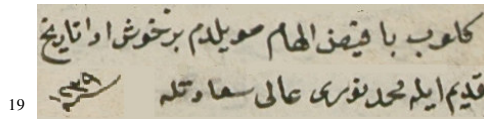 كلوب با فيض الهام سويلدم بر خوش ادا تاريخ
قديم ايله محمد نورى عالى سعادتله
١٢٣٩
19